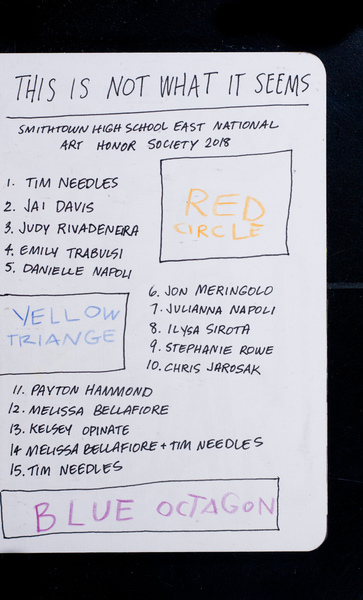 THIS IS NOT WHAT IT SEEMS
SMITHTOWN HIGH SCHOOL EAST NATIONAL
ART HONOR SOCIETY 2018
1. TIM NEEDLES
2. JAI DAVIS
3. JUDY RIVADENEIRA
4. EMILY TRABULSI
5. DANIELLE NAPOLI
RED
CIRCLE
YELLOW
TRIANGE
6. JON MERINGOLO
7. JULIANNA NAPOLI
8. ILYSA SIROTA
9. STEPHANIE ROWE
10. CHRIS JAROSAK
11. PAYTON HAMMOND
12. MELISSA BELLAFIORE
13. KELSEY OPINATE
14 MELISSA BELLAFIORE + TIM NEEDLES
15. TIM NEEDLES
BLUE OCTAGON